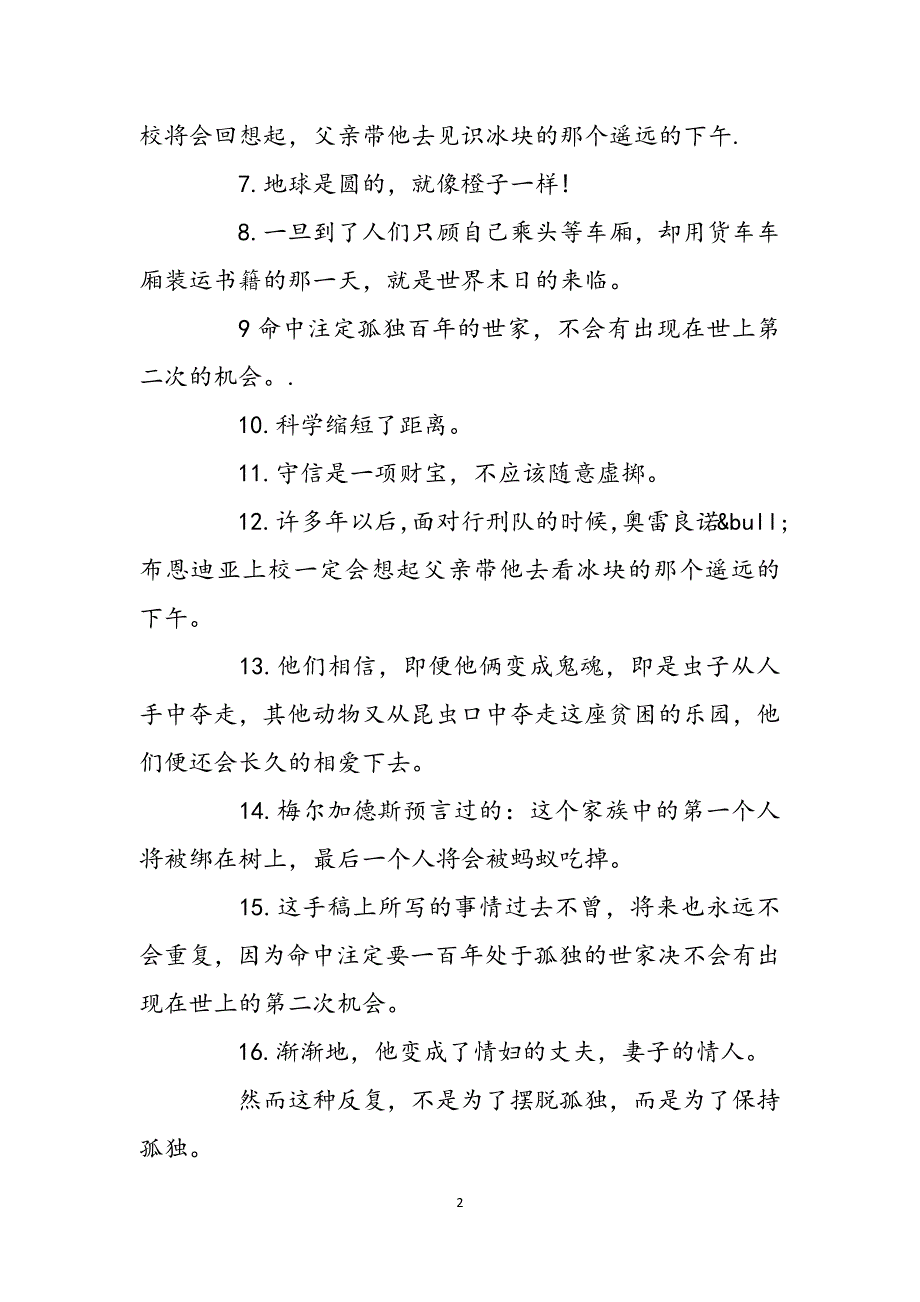 校将会回想起，父亲带他去见识冰块的那个遥远的下午.
7.地球是圆的，就像橙子一样！
8.一旦到了人们只顾自己乘头等车厢，却用货车车
厢装运书籍的那一天，就是世界末日的来临。
9 命中注定孤独百年的世家，不会有出现在世上第
二次的机会。.
10.科学缩短了距离。
11.守信是一项财宝，不应该随意虚掷。
12.许多年以后,面对行刑队的时候,奥雷良诺&bull;
布恩迪亚上校一定会想起父亲带他去看冰块的那个遥远的
下午。
13.他们相信，即便他俩变成鬼魂，即是虫子从人
手中夺走，其他动物又从昆虫口中夺走这座贫困的乐园，他
们便还会长久的相爱下去。
14.梅尔加德斯预言过的：这个家族中的第一个人
将被绑在树上，最后一个人将会被蚂蚁吃掉。
15.这手稿上所写的事情过去不曾，将来也永远不
会重复，因为命中注定要一百年处于孤独的世家决不会有出
现在世上的第二次机会。
16.渐渐地，他变成了情妇的丈夫，妻子的情人。
然而这种反复，不是为了摆脱孤独，而是为了保持
孤独。
2